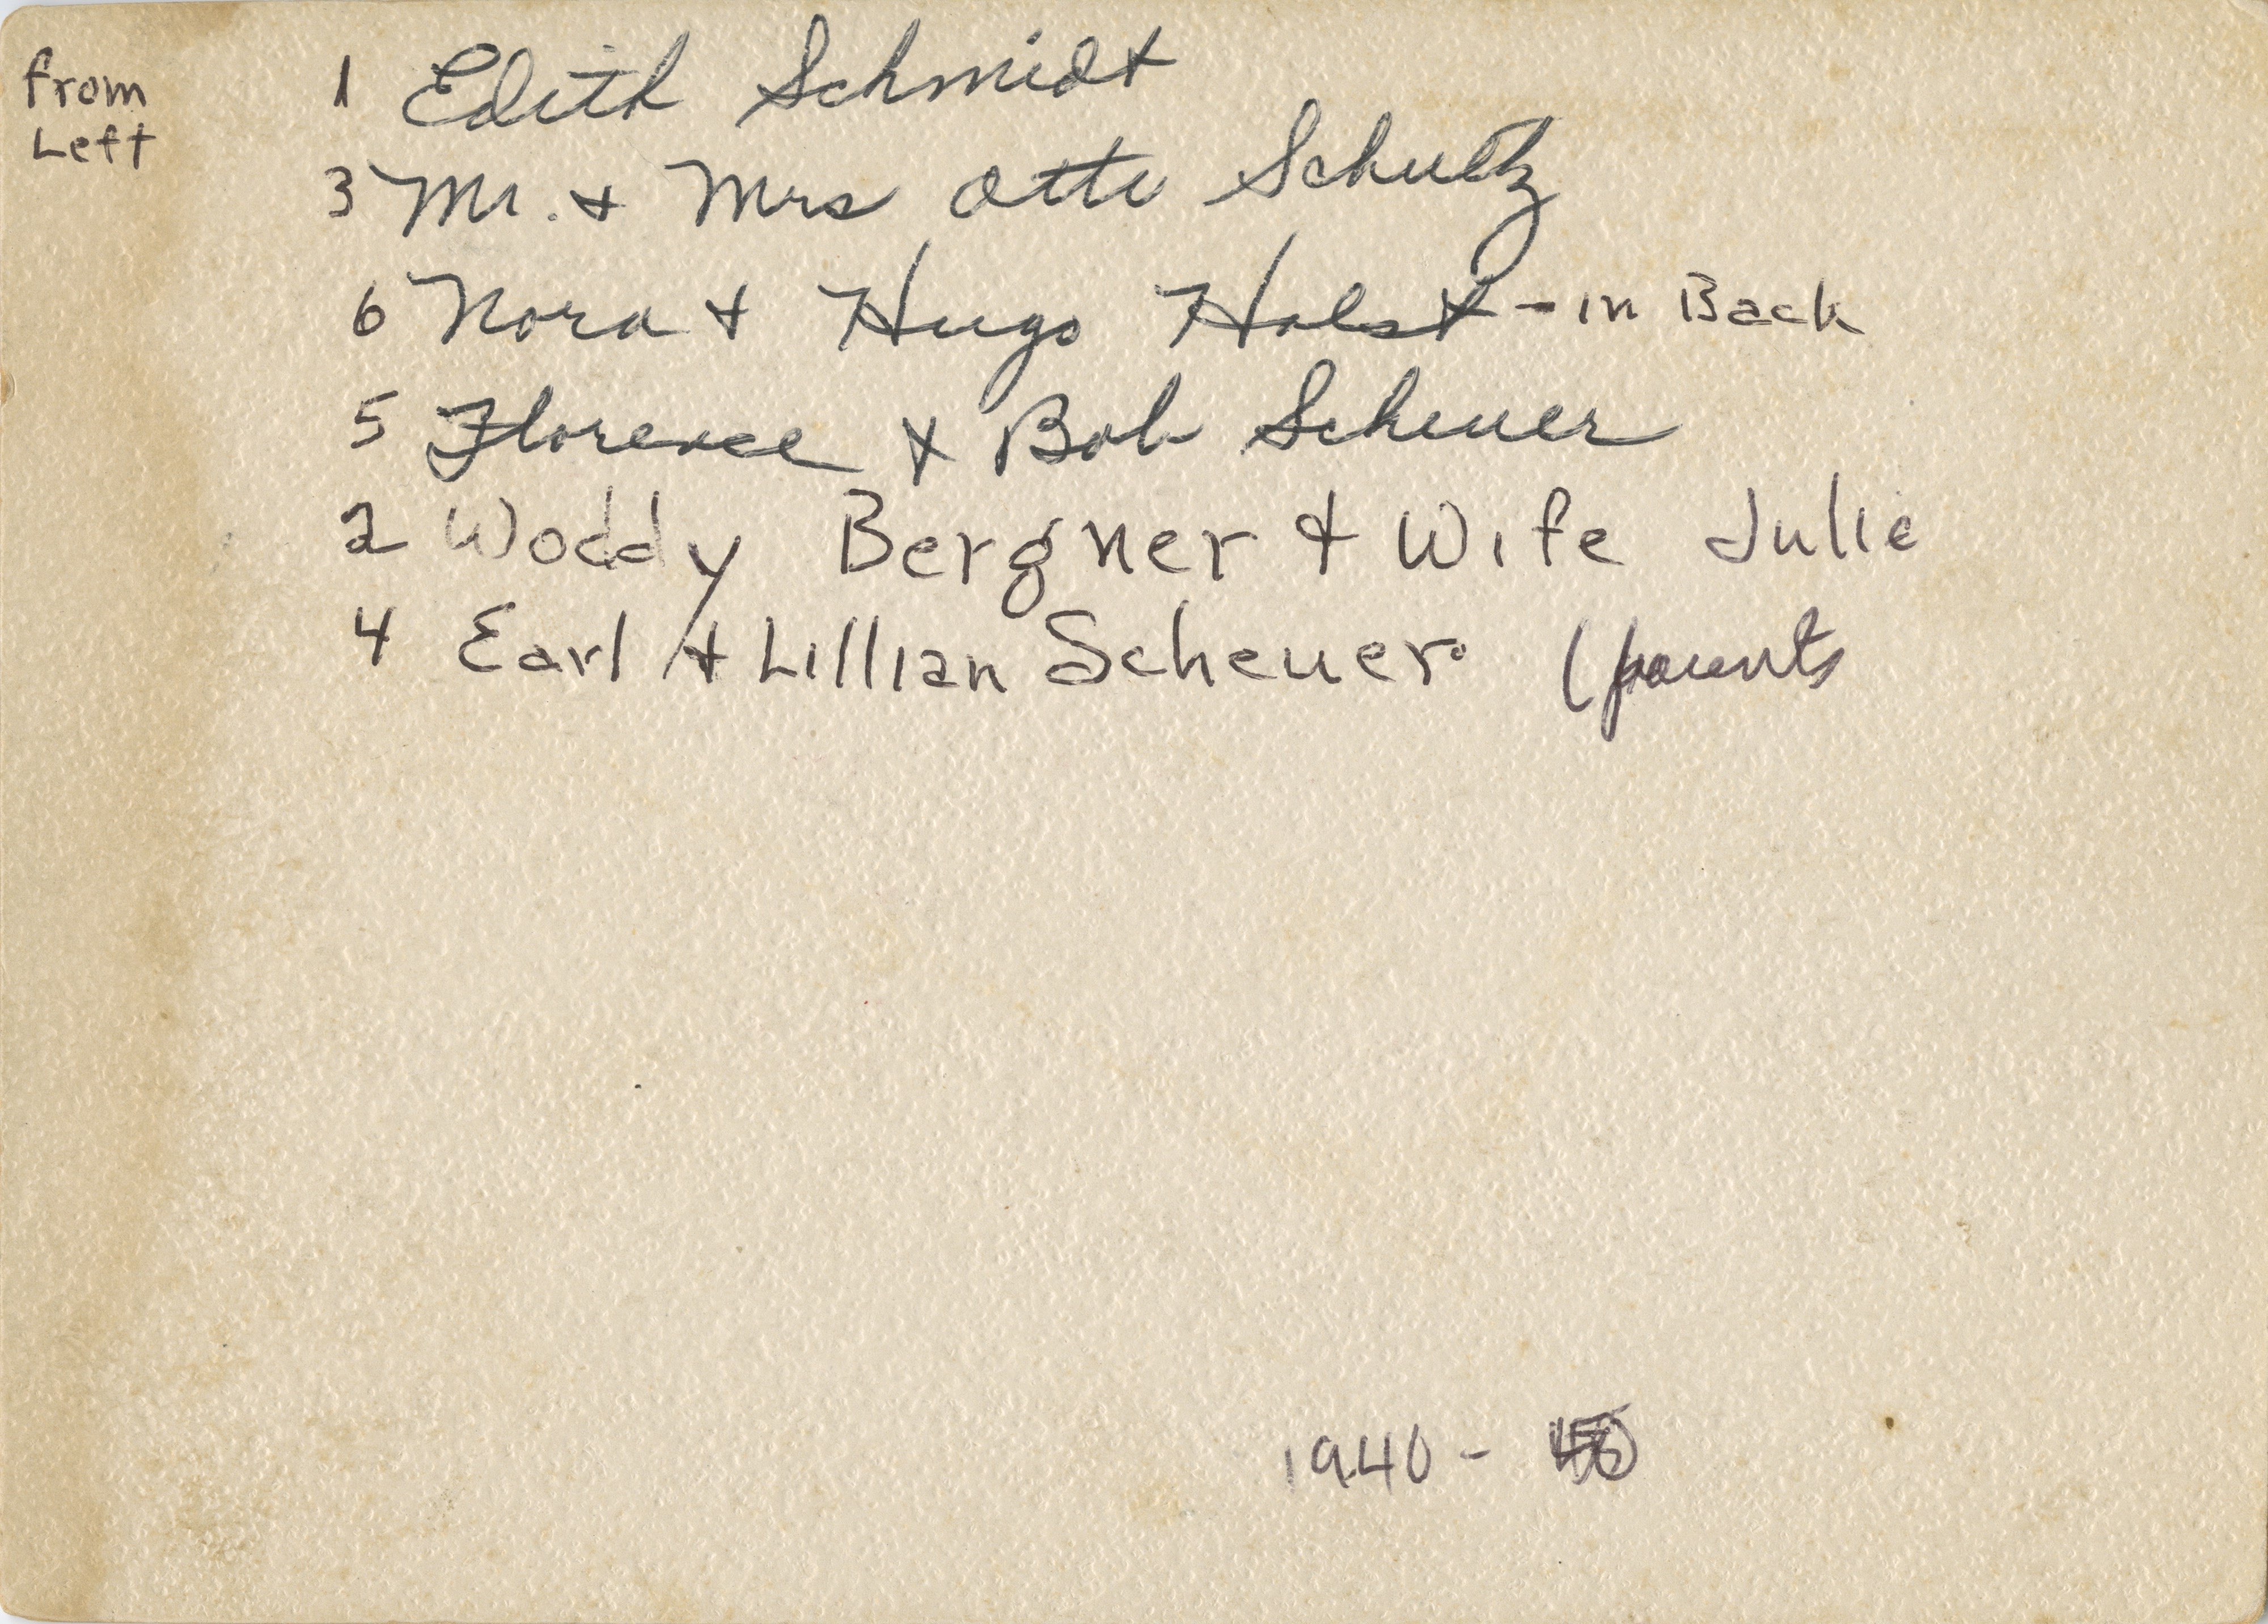 from
Left
1 Edith Schmidt
3 Mr. & Mrs Otto Schultz
6 Nora & Hugo Holst - in Back
5 Florence & Bob Scheuer
2 Woddy Bergner & Wife Julie
4 Earl & Lillian Scheuer (parents
1940 -